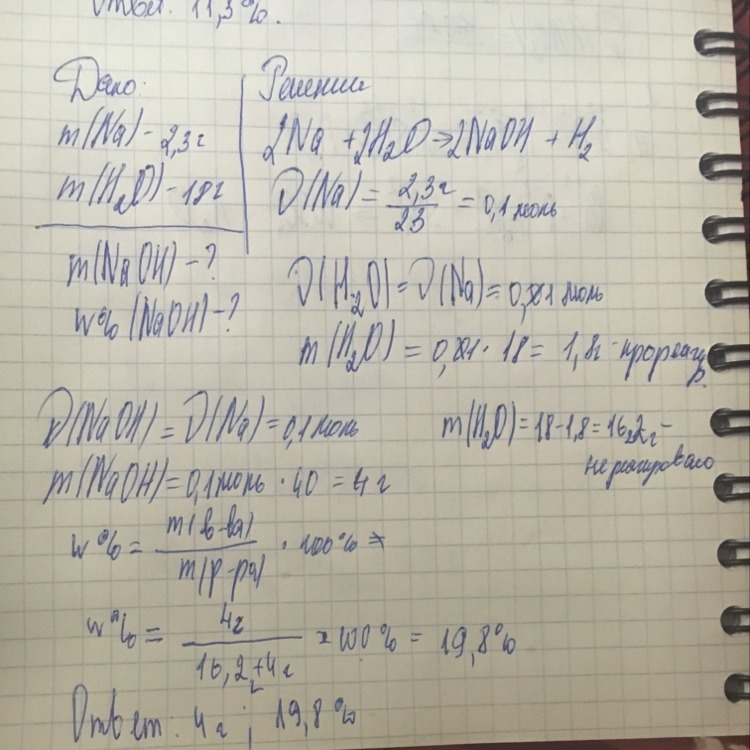 Ответ: 11,3%.
Дано:
m(Na) - 2,3г
m(H₂O) - 18г
m(NaOH) - ?
w% (NaOH) - ?
Решение
2Na + 2H₂O → 2NaOH + H₂
ν(Na) = 2,3г / 23 = 0,1 моль
ν(H₂O) = ν(Na) = 0,1 моль
m(H₂O) = 0,1 · 18 = 1,8г - прореагир.
ν(NaOH) = ν(Na) = 0,1 моль
m(H₂O) = 18 - 1,8 = 16,2г -
не реагировало
m(NaOH) = 0,1 моль · 40 = 4 г
w% = m(в-ва) / m(р-ра) · 100% =
w% = 4г / 16,2г + 4г × 100% = 19,8%
Ответ: 4г ; 19,8%